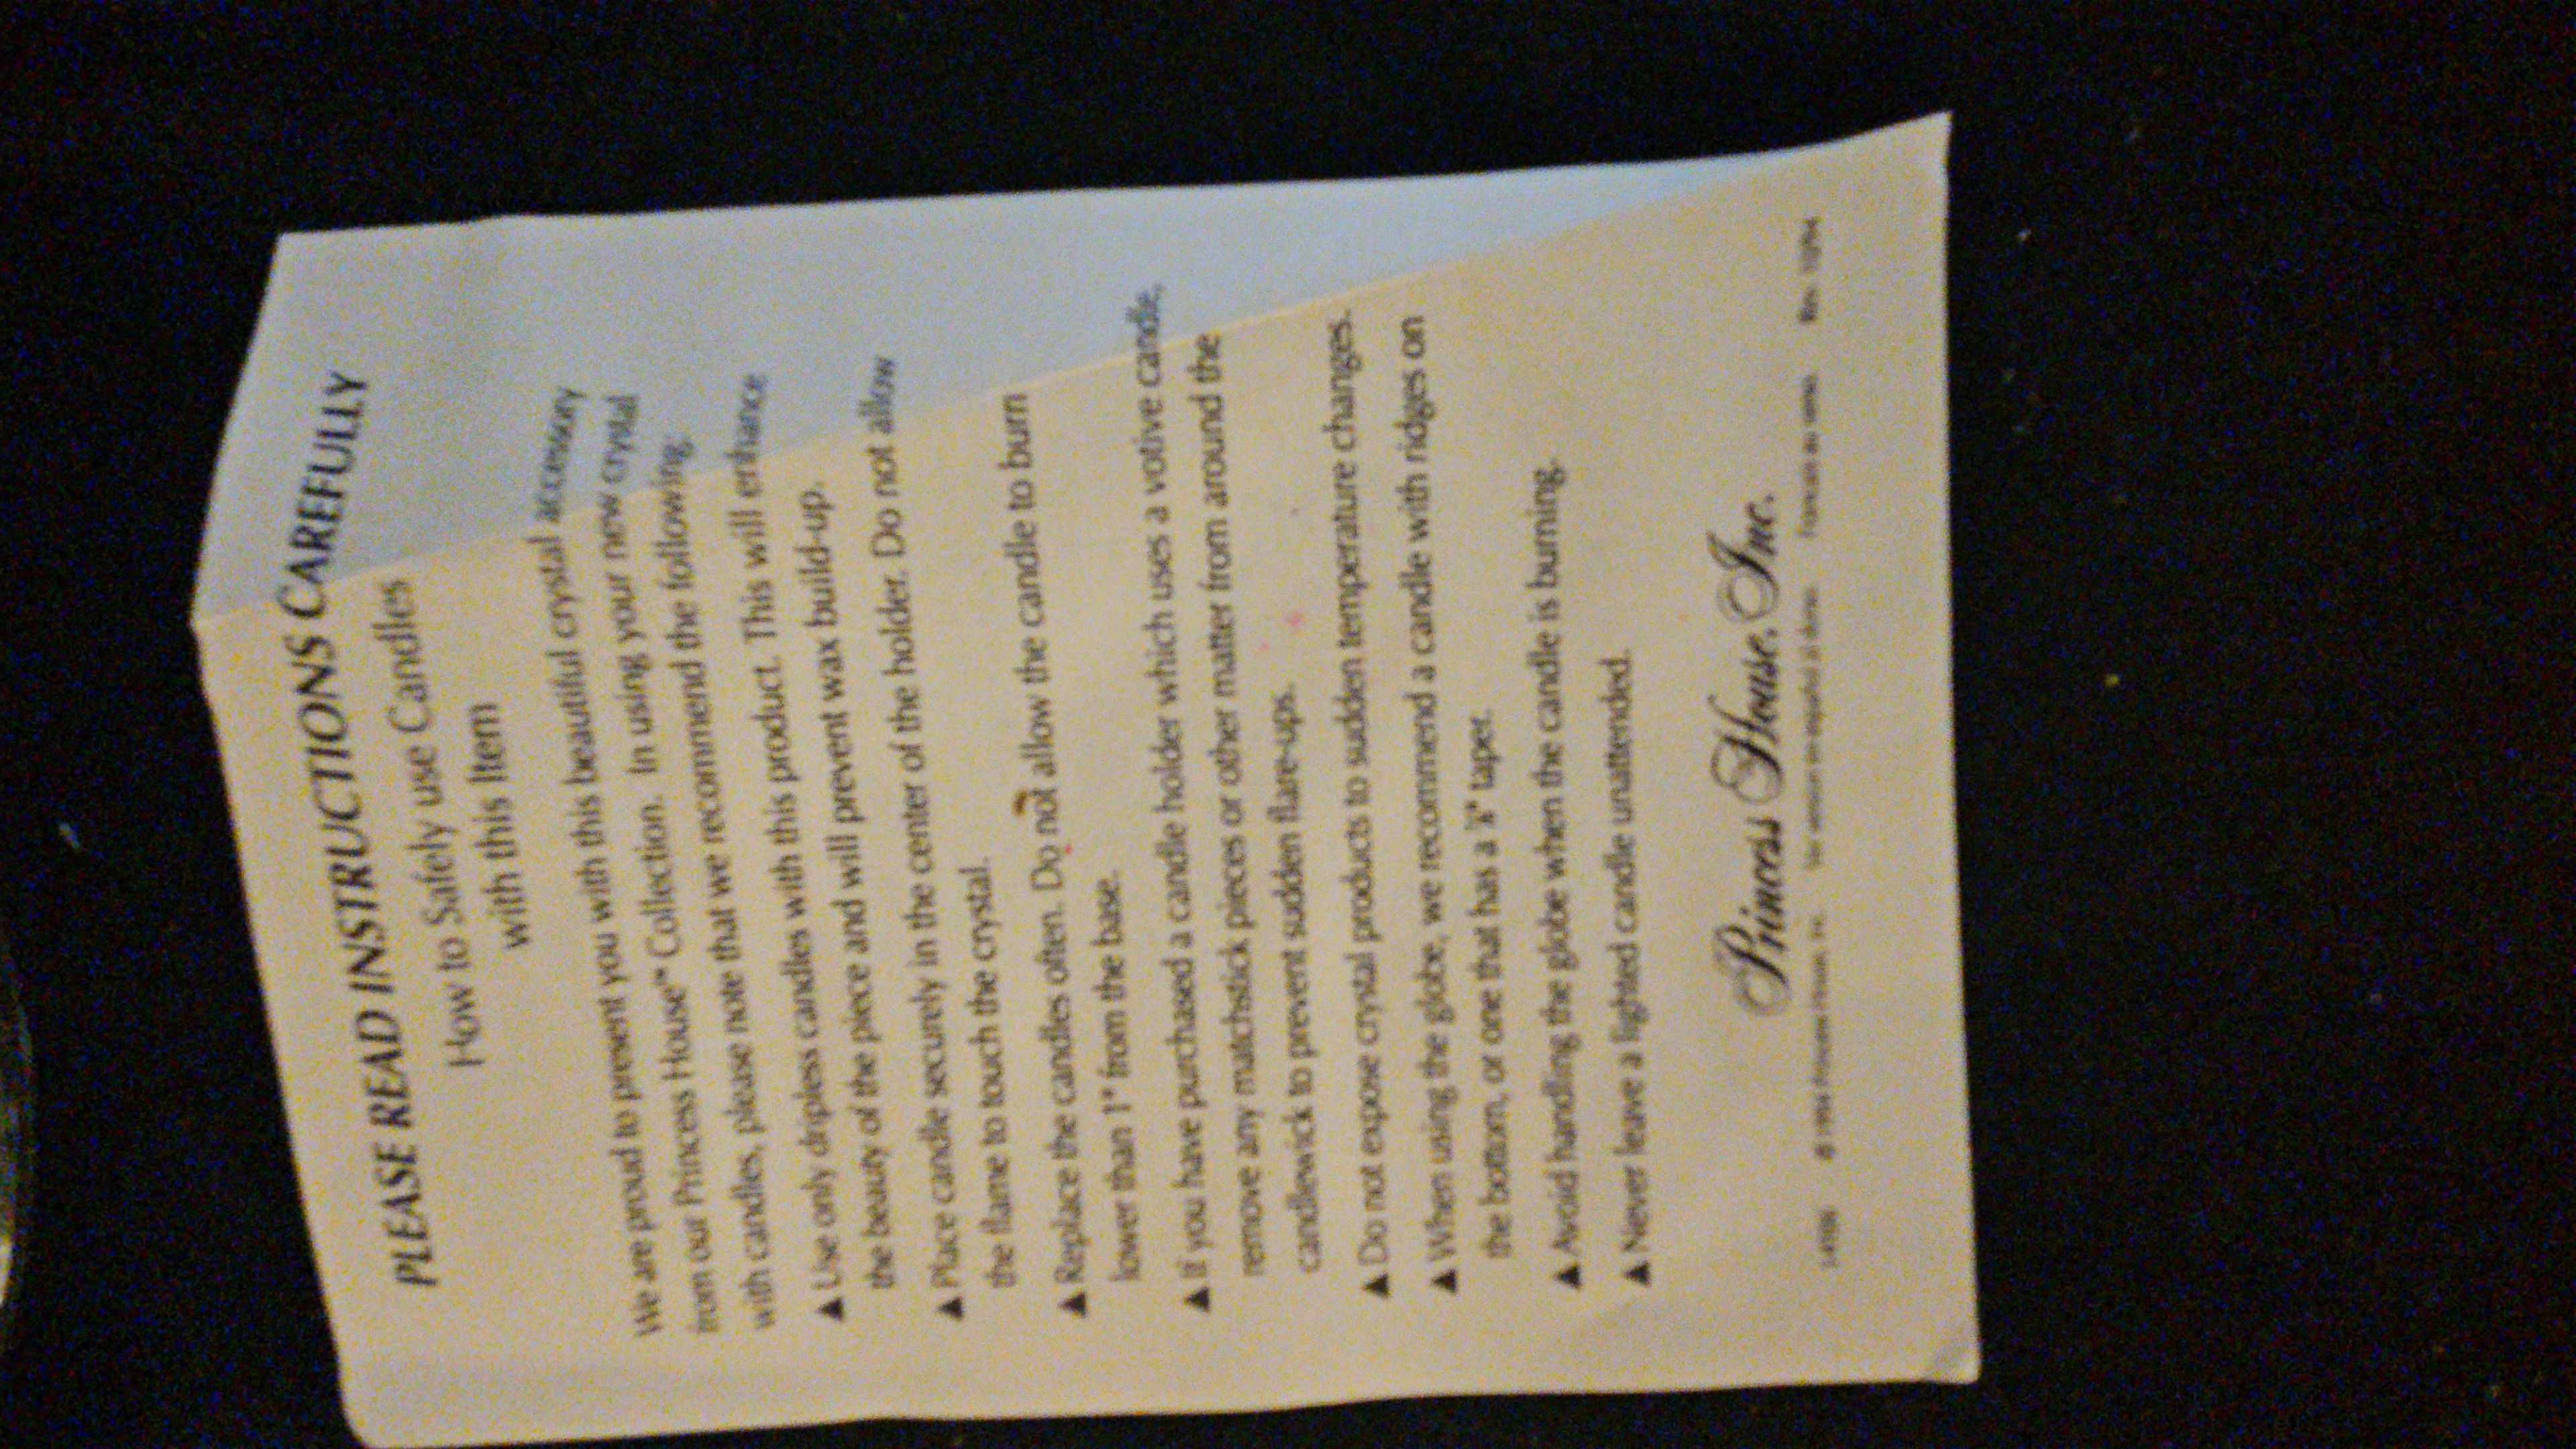 PLEASE READ INSTRUCTIONS CAREFULLY
How to Safely use Candles
with this Item
We are proud to present you with this beautiful crystal accessory
from our Princess House™ Collection. In using your new crystal
with candles, please note that we recommend the following:
▲ Use only dripless candles with this product. This will enhance
the beauty of the piece and will prevent wax build-up.
▲ Place candle securely in the center of the holder. Do not allow
the flame to touch the crystal.
▲ Replace the candles often. Do not allow the candle to burn
lower than 1" from the base.
▲ If you have purchased a candle holder which uses a votive candle,
remove any matchstick pieces or other matter from around the
candlewick to prevent sudden flare-ups.
▲ Do not expose crystal products to sudden temperature changes.
▲ When using the globe, we recommend a candle with ridges on
the bottom, or one that has a taper.
▲ Avoid handling the globe when the candle is burning.
▲ Never leave a lighted candle unattended.
Princess House, Inc.
© 1994 Princess House, Inc. Ver version en español al dorso. Francais au verso. Rev. 10/94